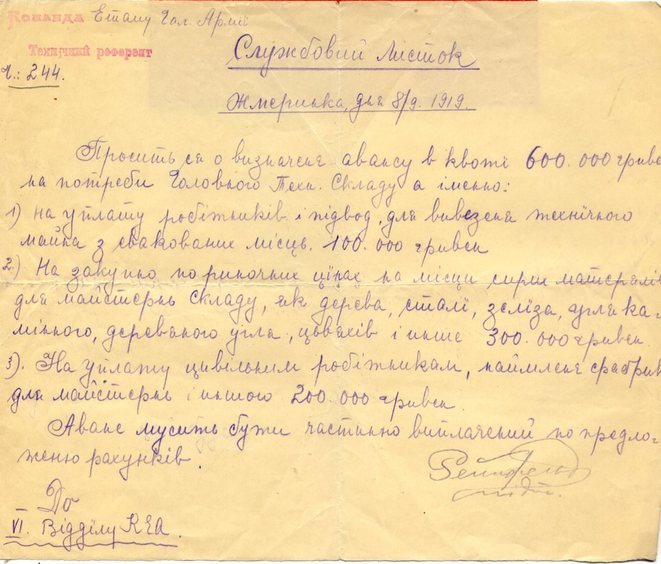 Команда Етапу Гал. Армії
Технічний референт
Ч.: 244.
Службовий листок
Жмеринка, дня 8/9. 1919.
Просить ся о визначенє авансу в квоті 600.000 гривен
на потреби Головного Техн. Складу а іменно:
1) на уплату робітників і підвод, для вивезеня технічного
майна з евакованих місць. 100.000 гривен
2.) На закупно по риночних цінах на місци сирих матеріалів
для майстерень складу, як дерева, сталі, зеліза, угля ка-
мінного, деревяного угля, цвяхів і инше 300.000 гривен.
3). На уплату цивільним робітникам,
для майстерень і иншого 200.000 гривен.
Аванс мусить бути частинно виплачений по предло-
женю рахунків.
До
VI. Відділу КЕА.